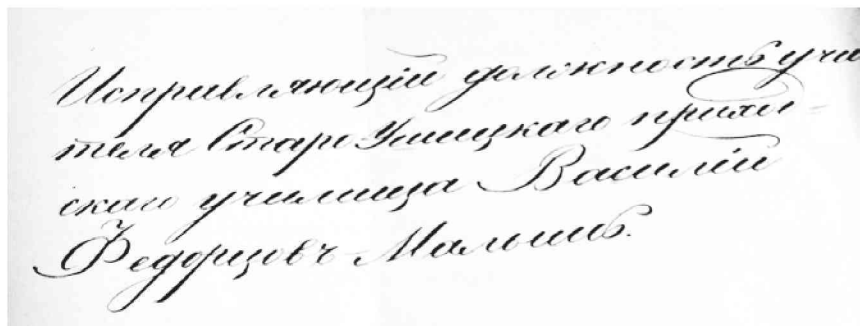 Исправляющій должность учи
теля Старо Ушицкаго приход-
скаго училища Василій
Федорцовъ-Малышъ.